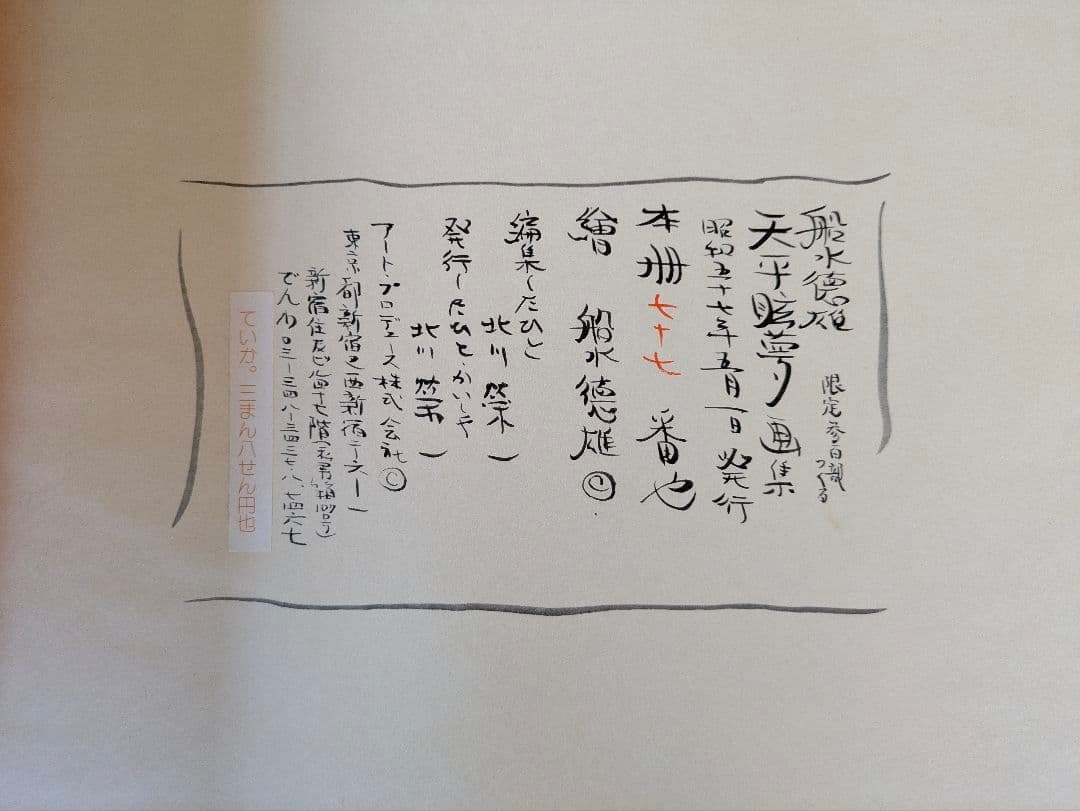 船水德雄
限定参百部
つくる
天平眩夢画集
昭和五十七年五月一日発行
本册七十七番也
繪 船水德雄
編集したひと
北川榮一
発行したひと・かいしゃ
北川榮一
アート・プロデュース株式会社 ©
東京都新宿区西新宿二ー六ー一
新宿住友ビル四十七階
でんわ〇三ー三四八ー三四二七・八、七四六七
ていか。三まん八せん円也